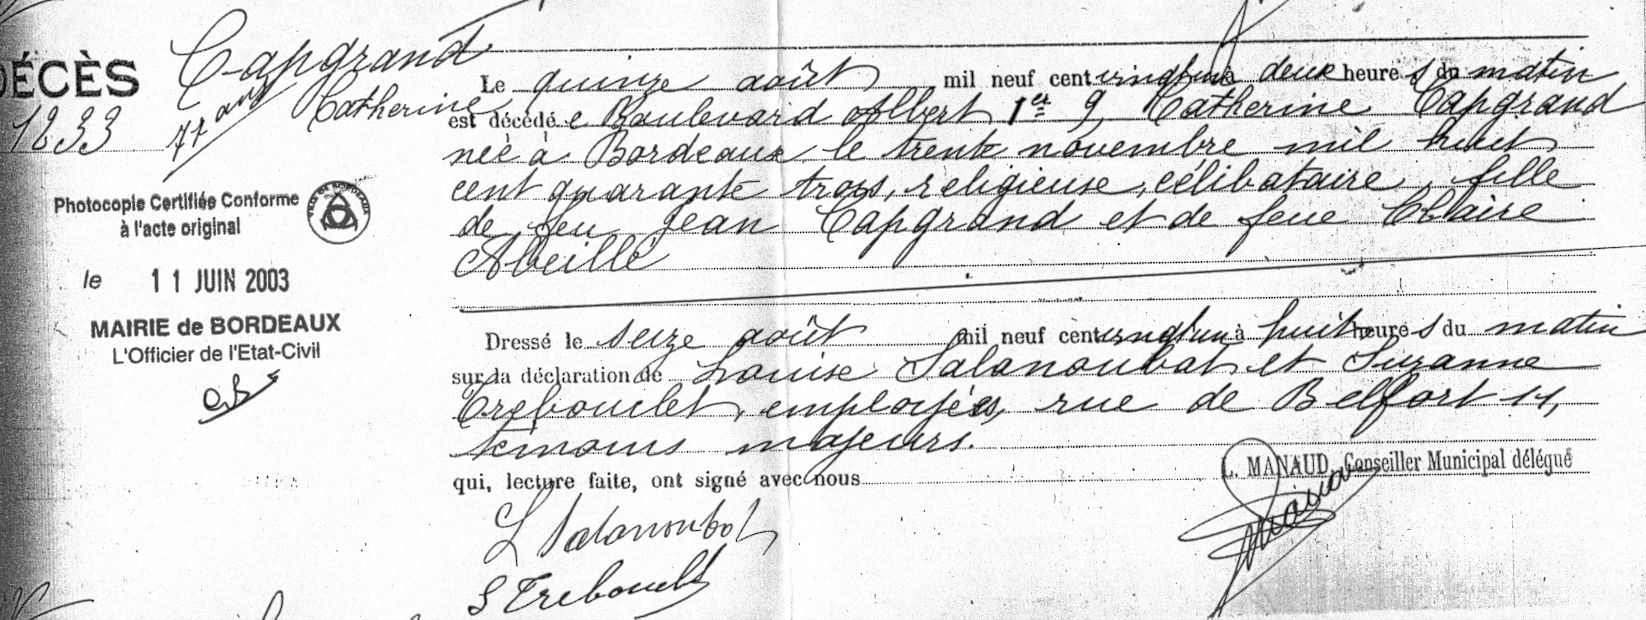 DÉCÈS
1233
Capgrand
Catherine
77 ans
Photocopie Certifiée Conforme
à l'acte original
VILLE DE BORDEAUX
le 11 JUIN 2003
MAIRIE de BORDEAUX
L'Officier de l'Etat-Civil
Le quinze août mil neuf cent vingt un à deux heures du matin
est décédée Boulevard Albert 1er 9, Catherine Capgrand
née à Bordeaux le trente novembre mil huit
cent quarante trois, religieuse, célibataire, fille
de feu Jean Capgrand et de feue Claire
Abeille
Dressé le seize août mil neuf cent vingt un à huit heures du matin
sur la déclaration de Louise Salanoubat et Suzanne
Trebouclet, employées, rue de Belfort 11,
témoins majeurs.
qui, lecture faite, ont signé avec nous L. MANAUD, Conseiller Municipal délégué
L Salanoubat
S Trebouclet